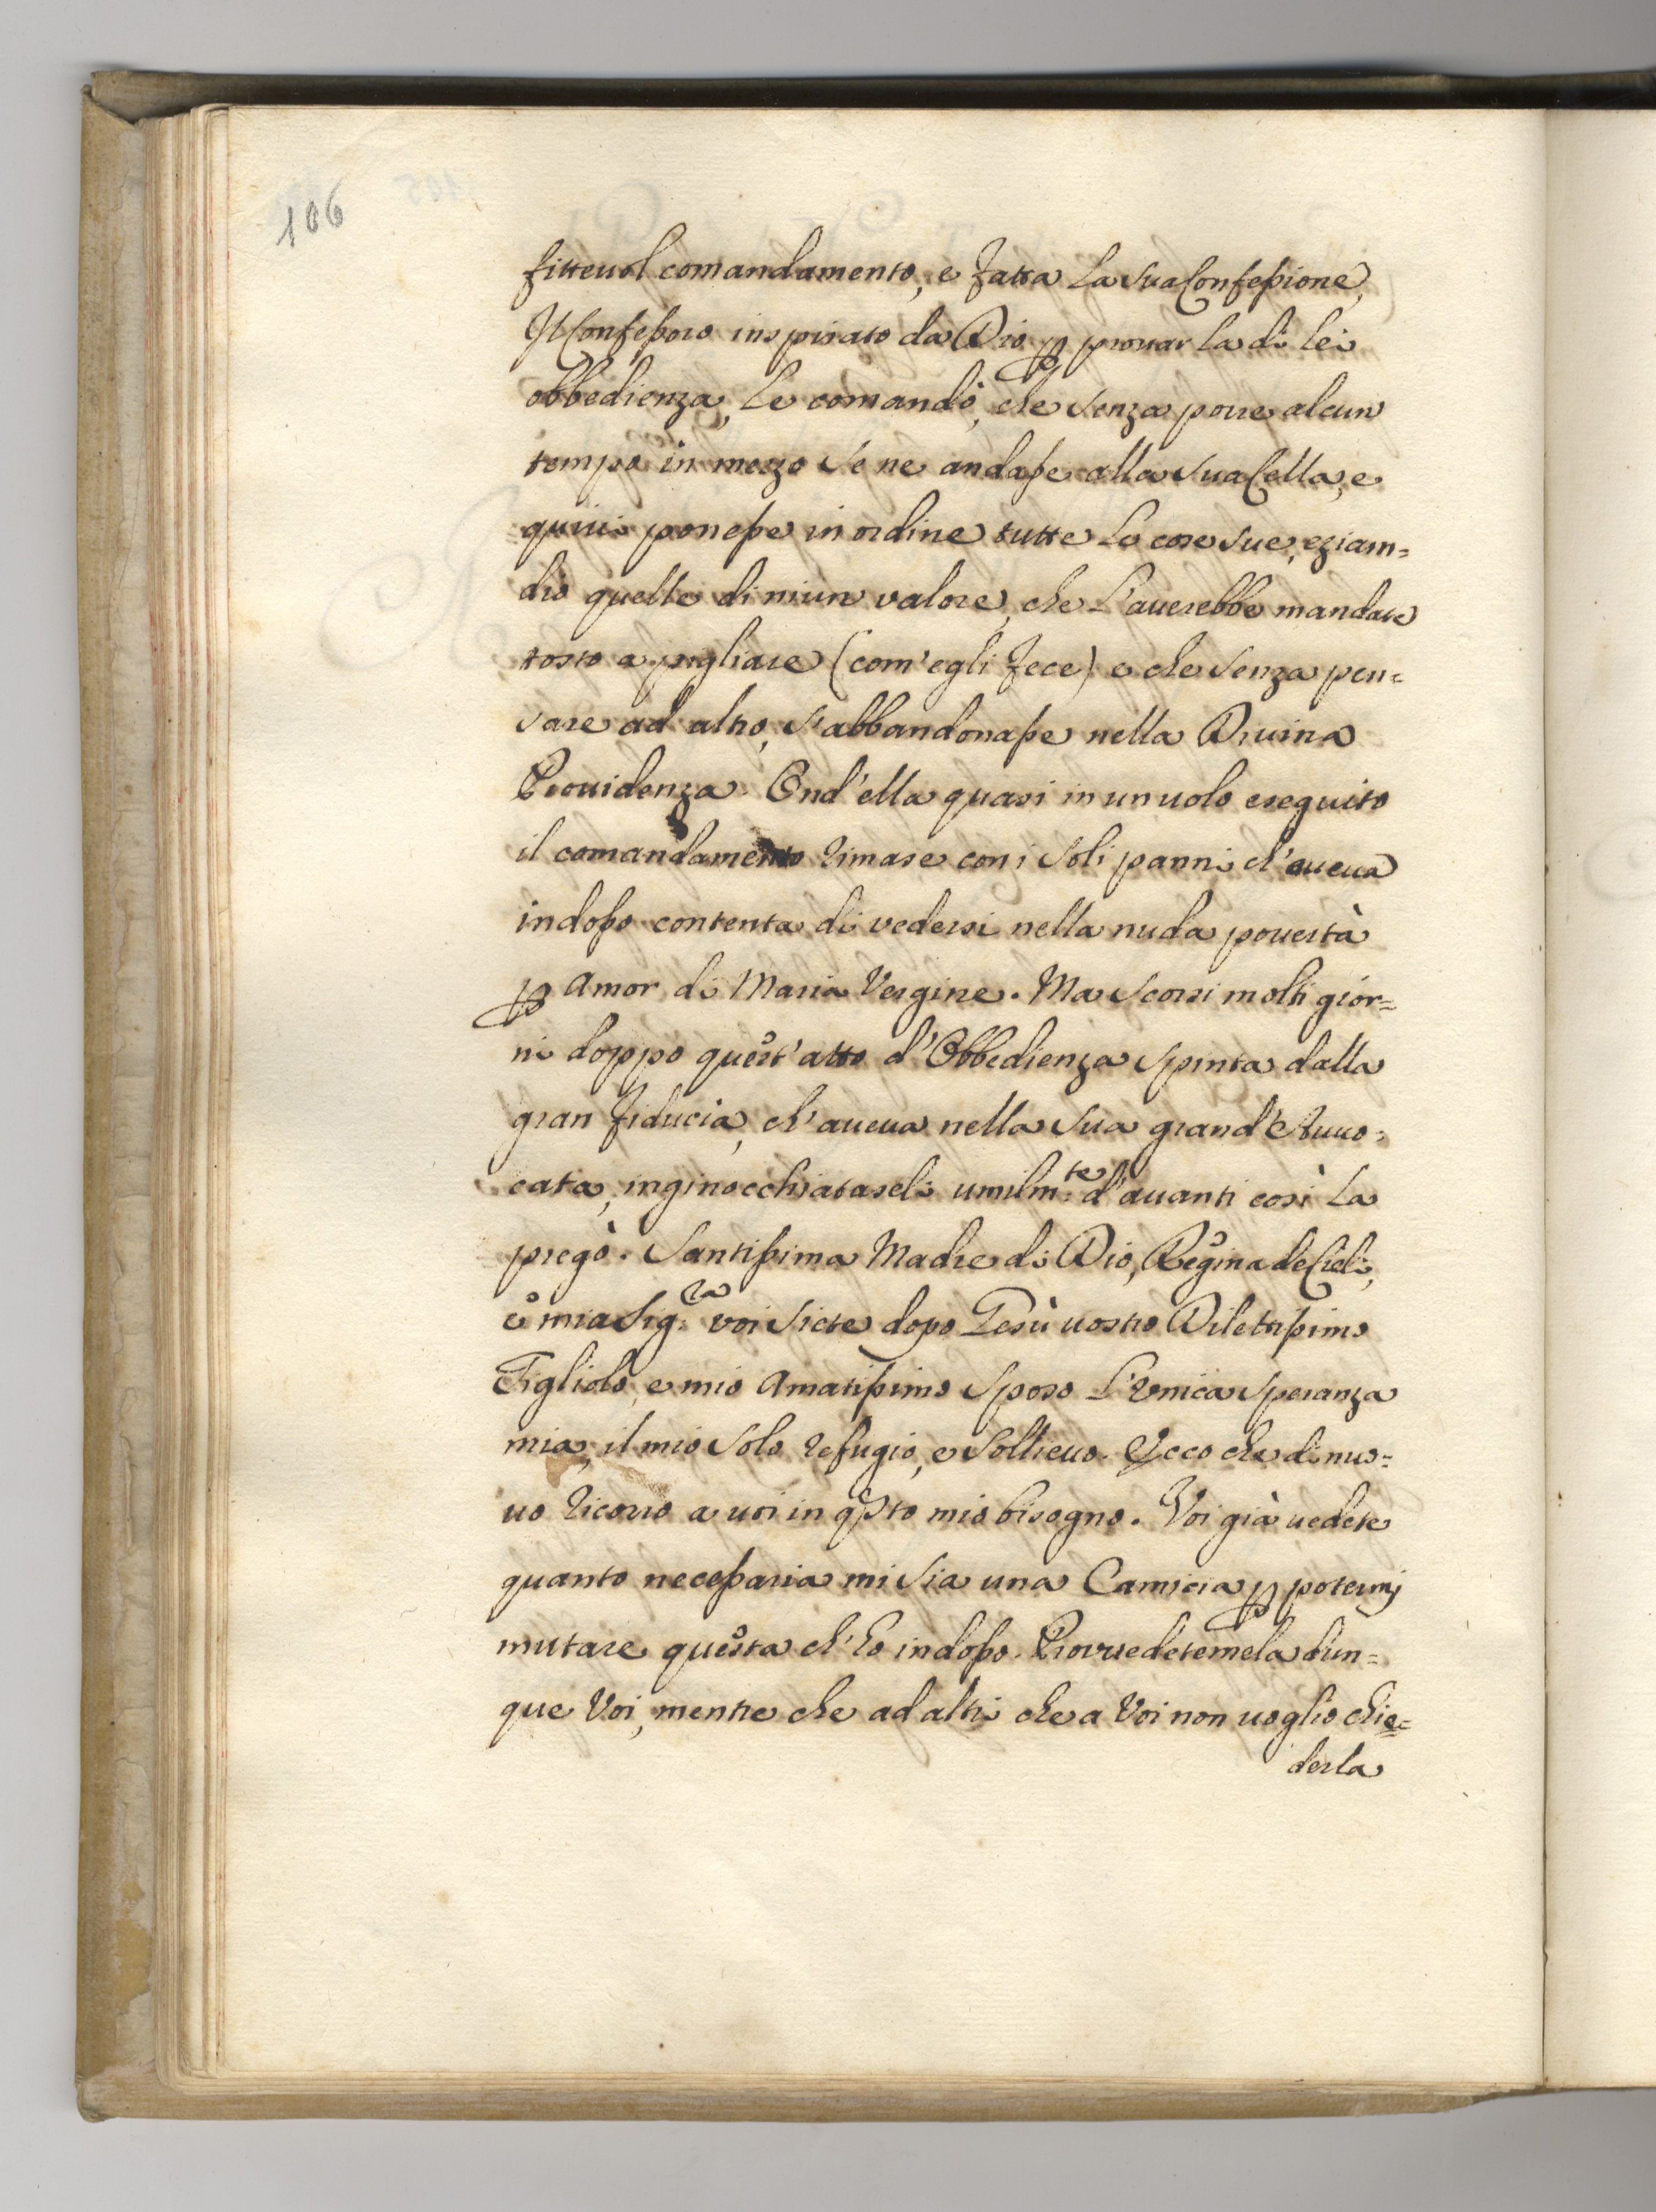 106
fitteuol comandamento, e fatta La sua Confessione,
Il Confessoro inspirato da Dio p prouar la di lei
obbedienza, Le comandò, che senza porre alcun
tempo in mezzo se ne andasse alla sua Cella, e
quiui ponesse in ordine tutte Le cose sue, eziam=
dio quelle di niun valore, che L'auerebbe mandate
tosto a pigliare (com'egli fece) e che senza pen=
sare ad altro, s'abbandonasse nella Diuina
Prouidenza. Ond'ella quasi in un uolo eseguito
il comandamento rimase con i soli panni ch'aueua
indosso contenta di vedersi nella nuda pouertà
p Amor di Maria Vergine. Ma scorsi molti gior=
ni doppo quest'atto d'Obbedienza spinta dalla
gran fiducia, ch'aueua nella sua grand'Auuo=
cata, inginocchiataseli umilm.te d'auanti così La
pregò. Santissima Madre di Dio, Regina de Cieli,
e mia Sig.ra voi siete dopo Gesù uostro Dilettissimo
Figliolo, e mio Amatissimo Sposo L'Vnica speranza
mia, il mio solo refugio, e sollieuo. Ecco che di nuo=
uo ricorro a uoi in qsto mio bisogno. Voi già uedete
quanto necessaria mi sia una Camicia p potermj
mutare questa ch'ho indosso. Provuedetemela dun=
que Voi, mentre che ad altri che a Voi non uoglio chie=
derla